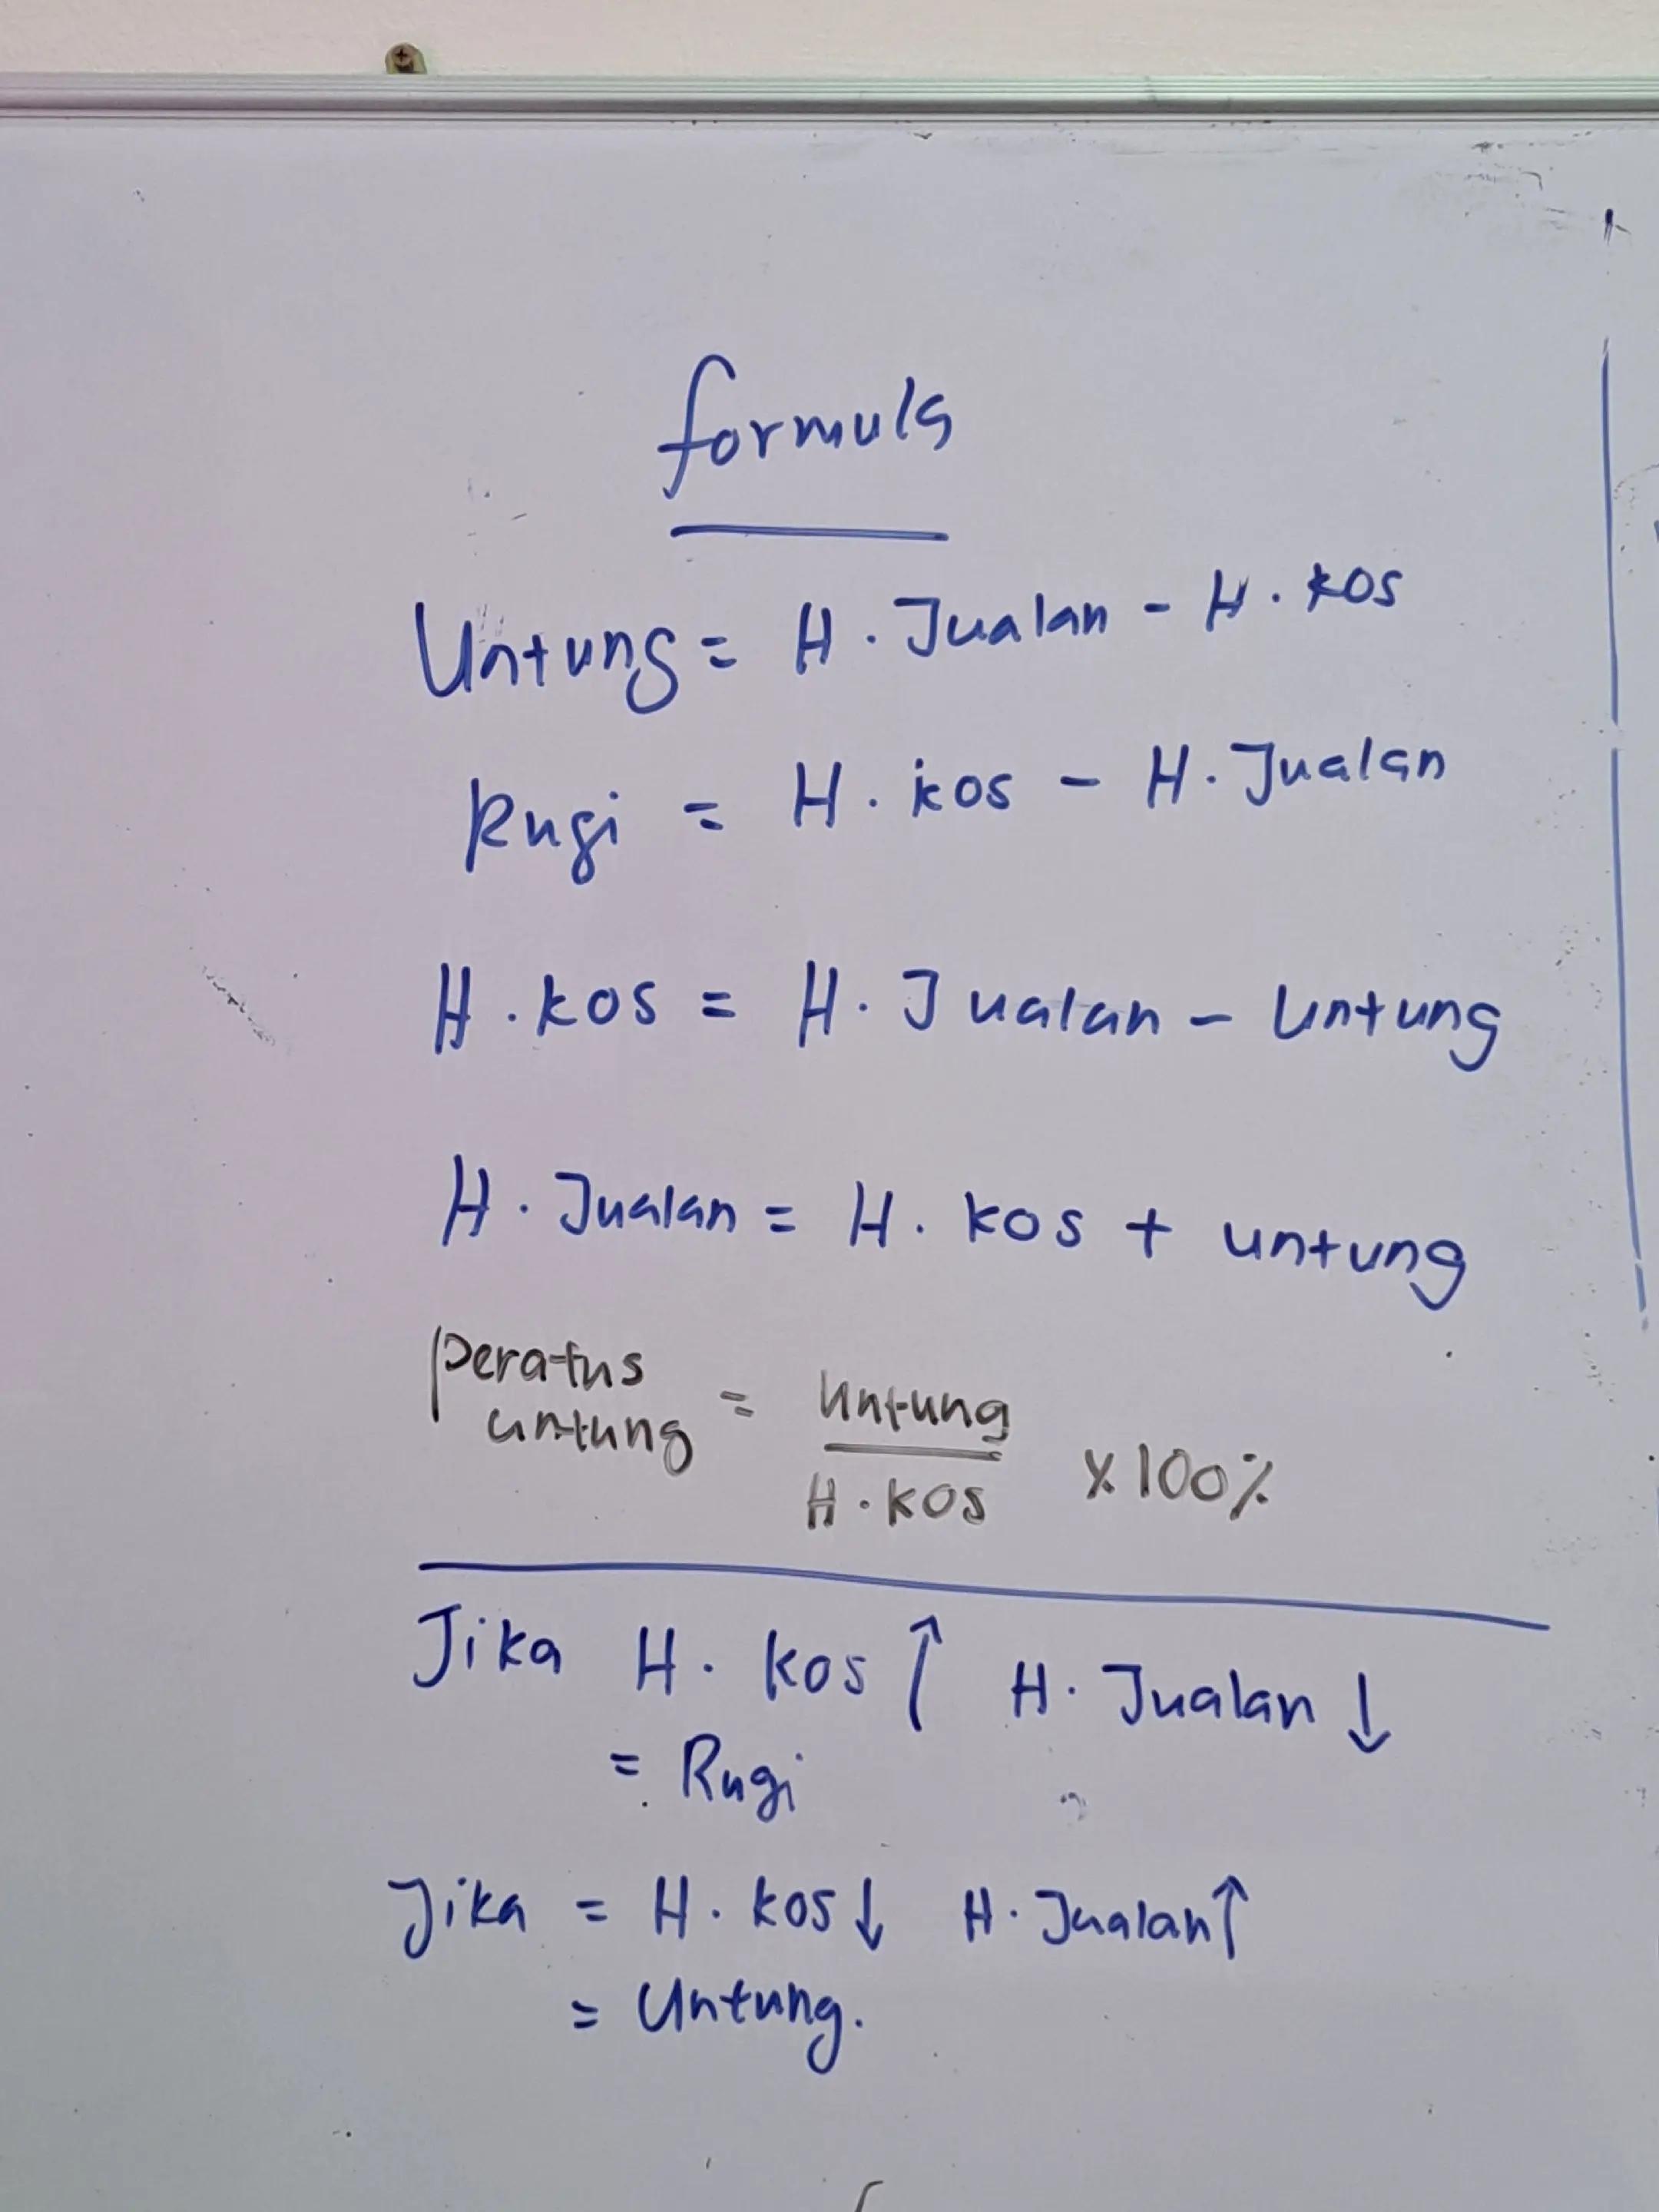 formula
Untung = H. Jualan - H. kos
Rugi = H. kos - H. Jualan
H. kos = H. Jualan - Untung
H. Jualan = H. kos + untung
peratus
untung = untung / H. kos x 100%
Jika H. kos ↑ H. Jualan ↓
= Rugi
Jika = H. kos ↓ H. Jualan ↑
= Untung.